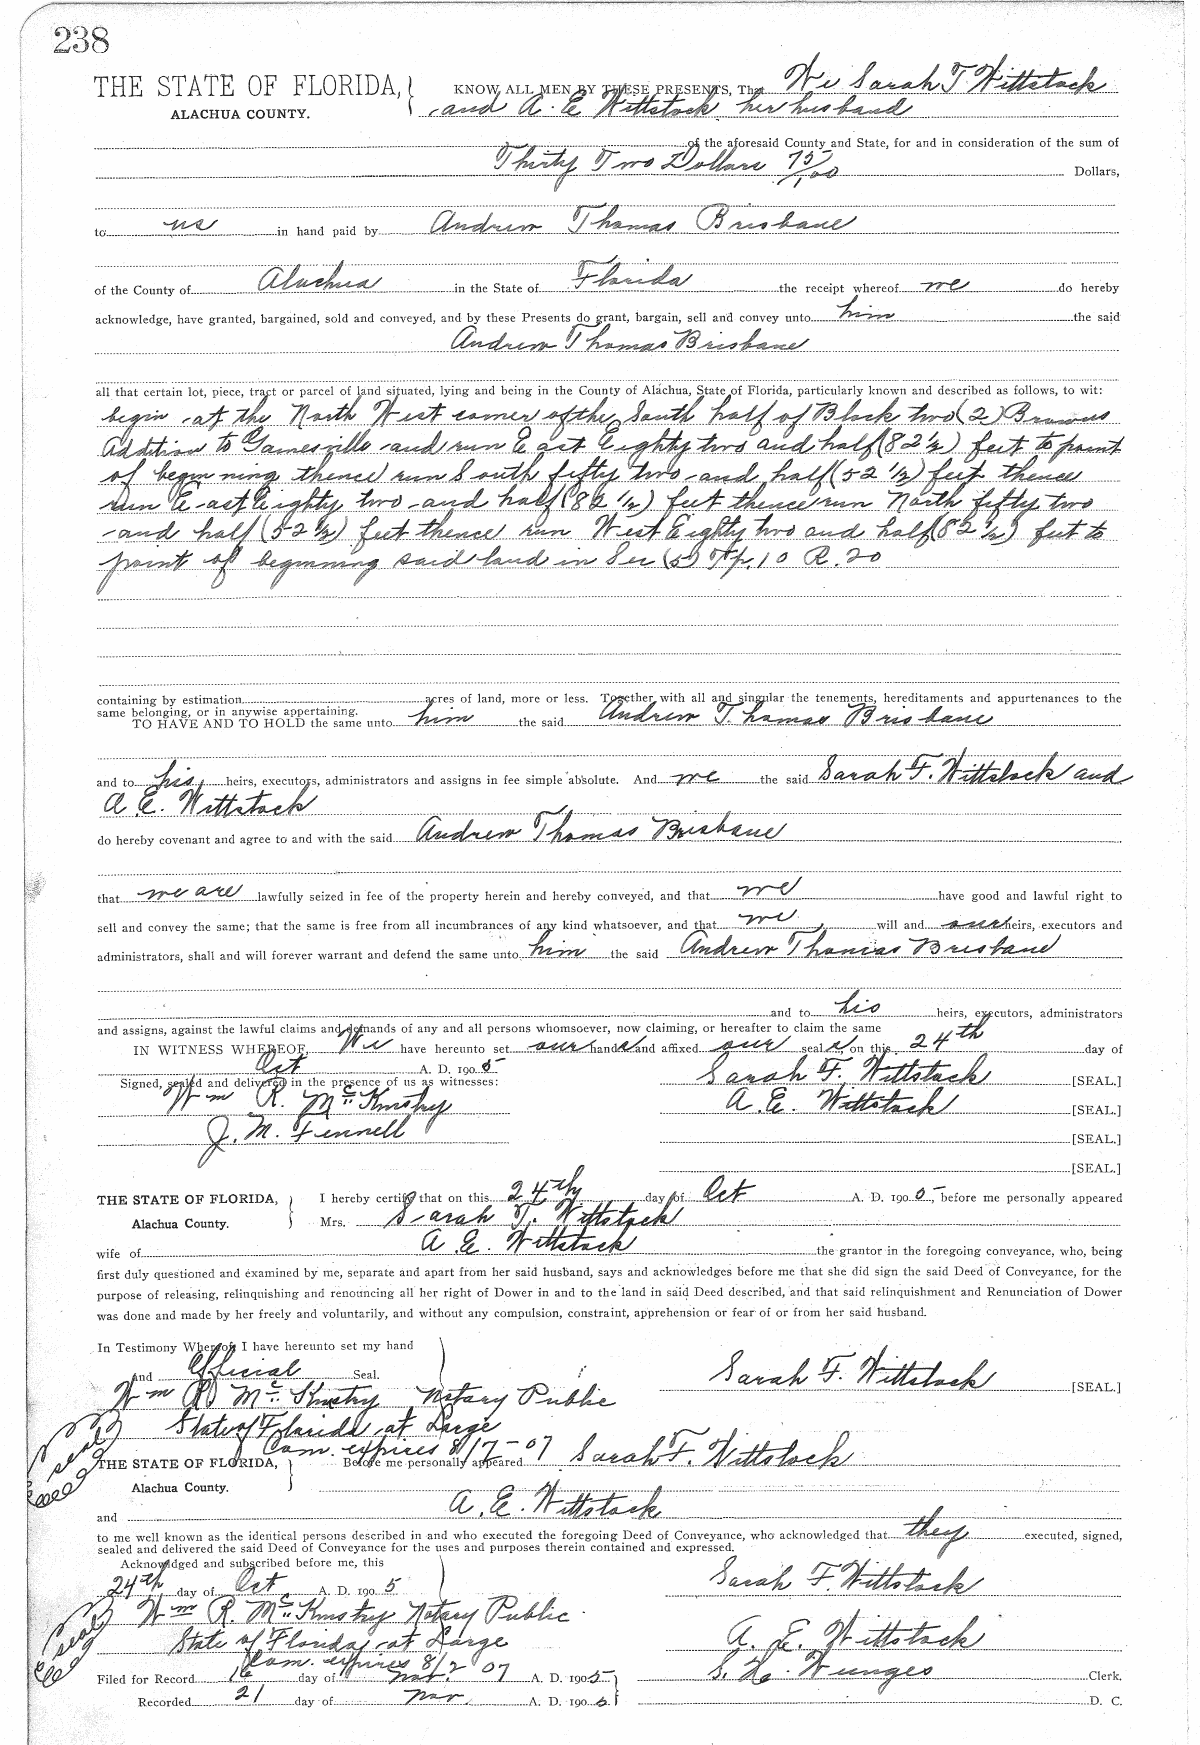 238
THE STATE OF FLORIDA, KNOW ALL MEN BY THESE PRESENTS, That We Sarah F. Wittstock
ALACHUA COUNTY. and A. E. Wittstock her husband
of the aforesaid County and State, for and in consideration of the sum of
Thirty Two Dollars 75/100 Dollars,
to us in hand paid by Andrew Thomas Brisbane
of the County of Alachua in the State of Florida the receipt whereof we do hereby
acknowledge, have granted, bargained, sold and conveyed, and by these Presents do grant, bargain, sell and convey unto him the said
Andrew Thomas Brisbane
all that certain lot, piece, tract or parcel of land situated, lying and being in the County of Alachua, State of Florida, particularly known and described as follows, to wit:
begin at the North West corner of the South half of Block two (2) Browns
Addition to Gainesville and run East Eighty two and half (82 1/2) feet to point
of beginning thence run South fifty two and half (52 1/2) feet thence
run East Eighty two and half (82 1/2) feet thence run North fifty two
and half (52 1/2) feet thence run West Eighty two and half (82 1/2) feet to
point of beginning said land in Sec (5) Tp. 10 R. 20
containing by estimation acres of land, more or less. Together with all and singular the tenements, hereditaments and appurtenances to the
same belonging, or in anywise appertaining.
TO HAVE AND TO HOLD the same unto him the said Andrew Thomas Brisbane
and to his heirs, executors, administrators and assigns in fee simple absolute. And we the said Sarah F. Wittstock and
A. E. Wittstock
do hereby covenant and agree to and with the said Andrew Thomas Brisbane
that we are lawfully seized in fee of the property herein and hereby conveyed, and that we have good and lawful right to
sell and convey the same; that the same is free from all incumbrances of any kind whatsoever, and that we will and our heirs, executors and
administrators, shall and will forever warrant and defend the same unto him the said Andrew Thomas Brisbane
and to his heirs, executors, administrators
and assigns, against the lawful claims and demands of any and all persons whomsoever, now claiming, or hereafter to claim the same
IN WITNESS WHEREOF, We have hereunto set our hands and affixed our seals, on this 24th day of
Oct A. D. 190 5
Signed, sealed and delivered in the presence of us as witnesses: Sarah F. Wittstock [SEAL.]
Wm R. McKinstry A. E. Wittstock [SEAL.]
J. M. Fennell [SEAL.]
[SEAL.]
THE STATE OF FLORIDA, I hereby certify that on this 24th day of Oct A. D. 190 5, before me personally appeared
Alachua County. Mrs. Sarah F. Wittstock
wife of A. E. Wittstock the grantor in the foregoing conveyance, who, being
first duly questioned and examined by me, separate and apart from her said husband, says and acknowledges before me that she did sign the said Deed of Conveyance, for the
purpose of releasing, relinquishing and renouncing all her right of Dower in and to the land in said Deed described, and that said relinquishment and Renunciation of Dower
was done and made by her freely and voluntarily, and without any compulsion, constraint, apprehension or fear of or from her said husband.
In Testimony Whereof, I have hereunto set my hand
And Official Seal. Sarah F. Wittstock [SEAL.]
Wm R. McKinstry Notary Public
State of Florida at Large
seal Com. expires 8/2-07
THE STATE OF FLORIDA, Before me personally appeared Sarah F. Wittstock
Alachua County.
and A. E. Wittstock
to me well known as the identical persons described in and who executed the foregoing Deed of Conveyance, who acknowledged that they executed, signed,
sealed and delivered the said Deed of Conveyance for the uses and purposes therein contained and expressed.
Acknowledged and subscribed before me, this
24th day of Oct A. D. 190 5 Sarah F. Wittstock
Wm R. McKinstry Notary Public
seal State of Florida at Large A. E. Wittstock
Com. expires 8/2 07
Filed for Record 16 day of Nov. A. D. 190 5 Clerk.
Recorded 21 day of Nov. A. D. 190 5. D. C.